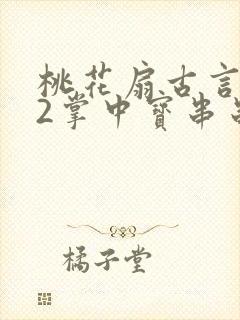 桃花扇古言
2掌中寶串
橘子堂